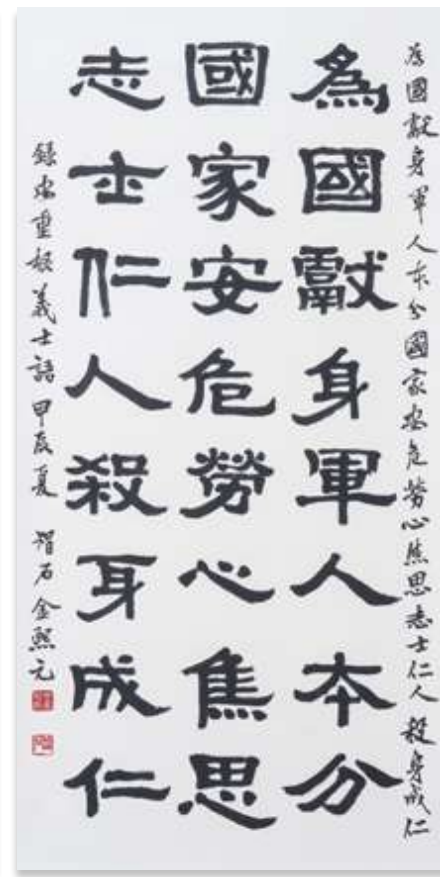 為國獻身軍人本分國家安危勞心焦思志士仁人殺身成仁
為國獻身軍人本分
國家安危勞心焦思
志士仁人殺身成仁
錄安重根義士語 甲辰夏 石 金熙元